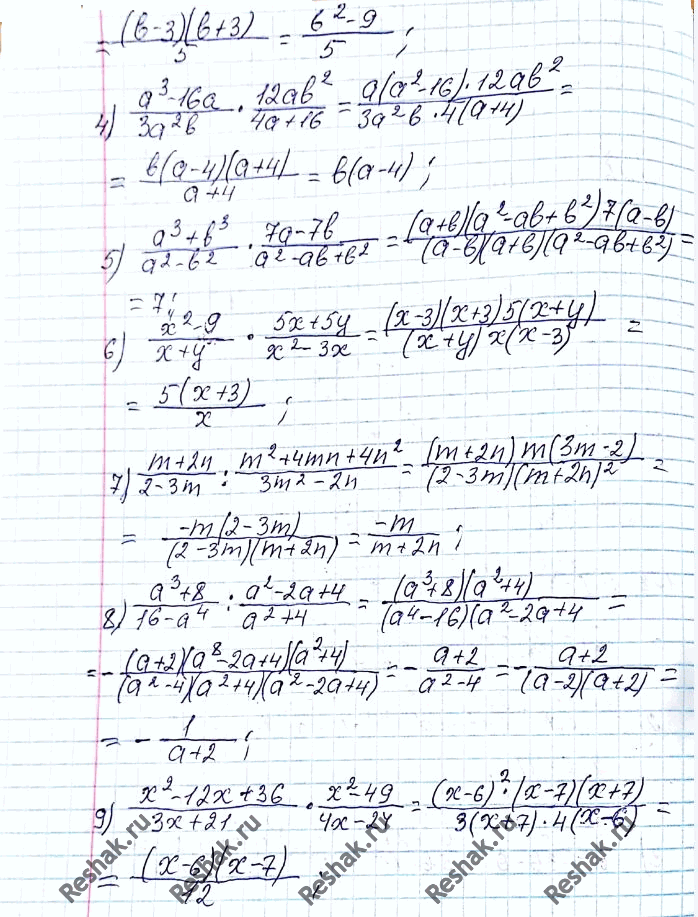 = (b-3)(b+3)/5 = b²-9/5 ;
4) a³-16a/3a²b · 12ab²/4a+16 = a(a²-16)·12ab²/3a²b·4(a+4) =
= b(a-4)(a+4)/a+4 = b(a-4) ;
5) a³+b³/a²-b² · 7a-7b/a²-ab+b² = (a+b)(a²-ab+b²)7(a-b)/(a-b)(a+b)(a²-ab+b²) =
= 7;
6) x²-9/x+y · 5x+5y/x²-3x = (x-3)(x+3)5(x+y)/(x+y)x(x-3) =
= 5(x+3)/x ;
7) m+2n/2-3m : m²+4mn+4n²/3m²-2n = (m+2n)m(3m-2)/(2-3m)(m+2n)² =
= -m(2-3m)/(2-3m)(m+2n) = -m/m+2n ;
8) a³+8/16-a⁴ : a²-2a+4/a²+4 = (a³+8)(a²+4)/(a⁴-16)(a²-2a+4 =
= - (a+2)(a⁸-2a+4)(a²+4)/(a²-4)(a²+4)(a²-2a+4) = - a+2/a²-4 = - a+2/(a-2)(a+2) =
= - 1/a+2 ;
9) x²-12x+36/3x+21 · x²-49/4x-24 = (x-6)²·(x-7)(x+7)/3(x+7)·4(x-6) =
= (x-6)(x-7)/12
Reshak.ru Reshak.ru Reshak.ru Reshak.ru Reshak.ru